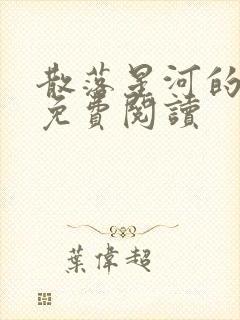 散落星河的
免費閱讀
葉偉超